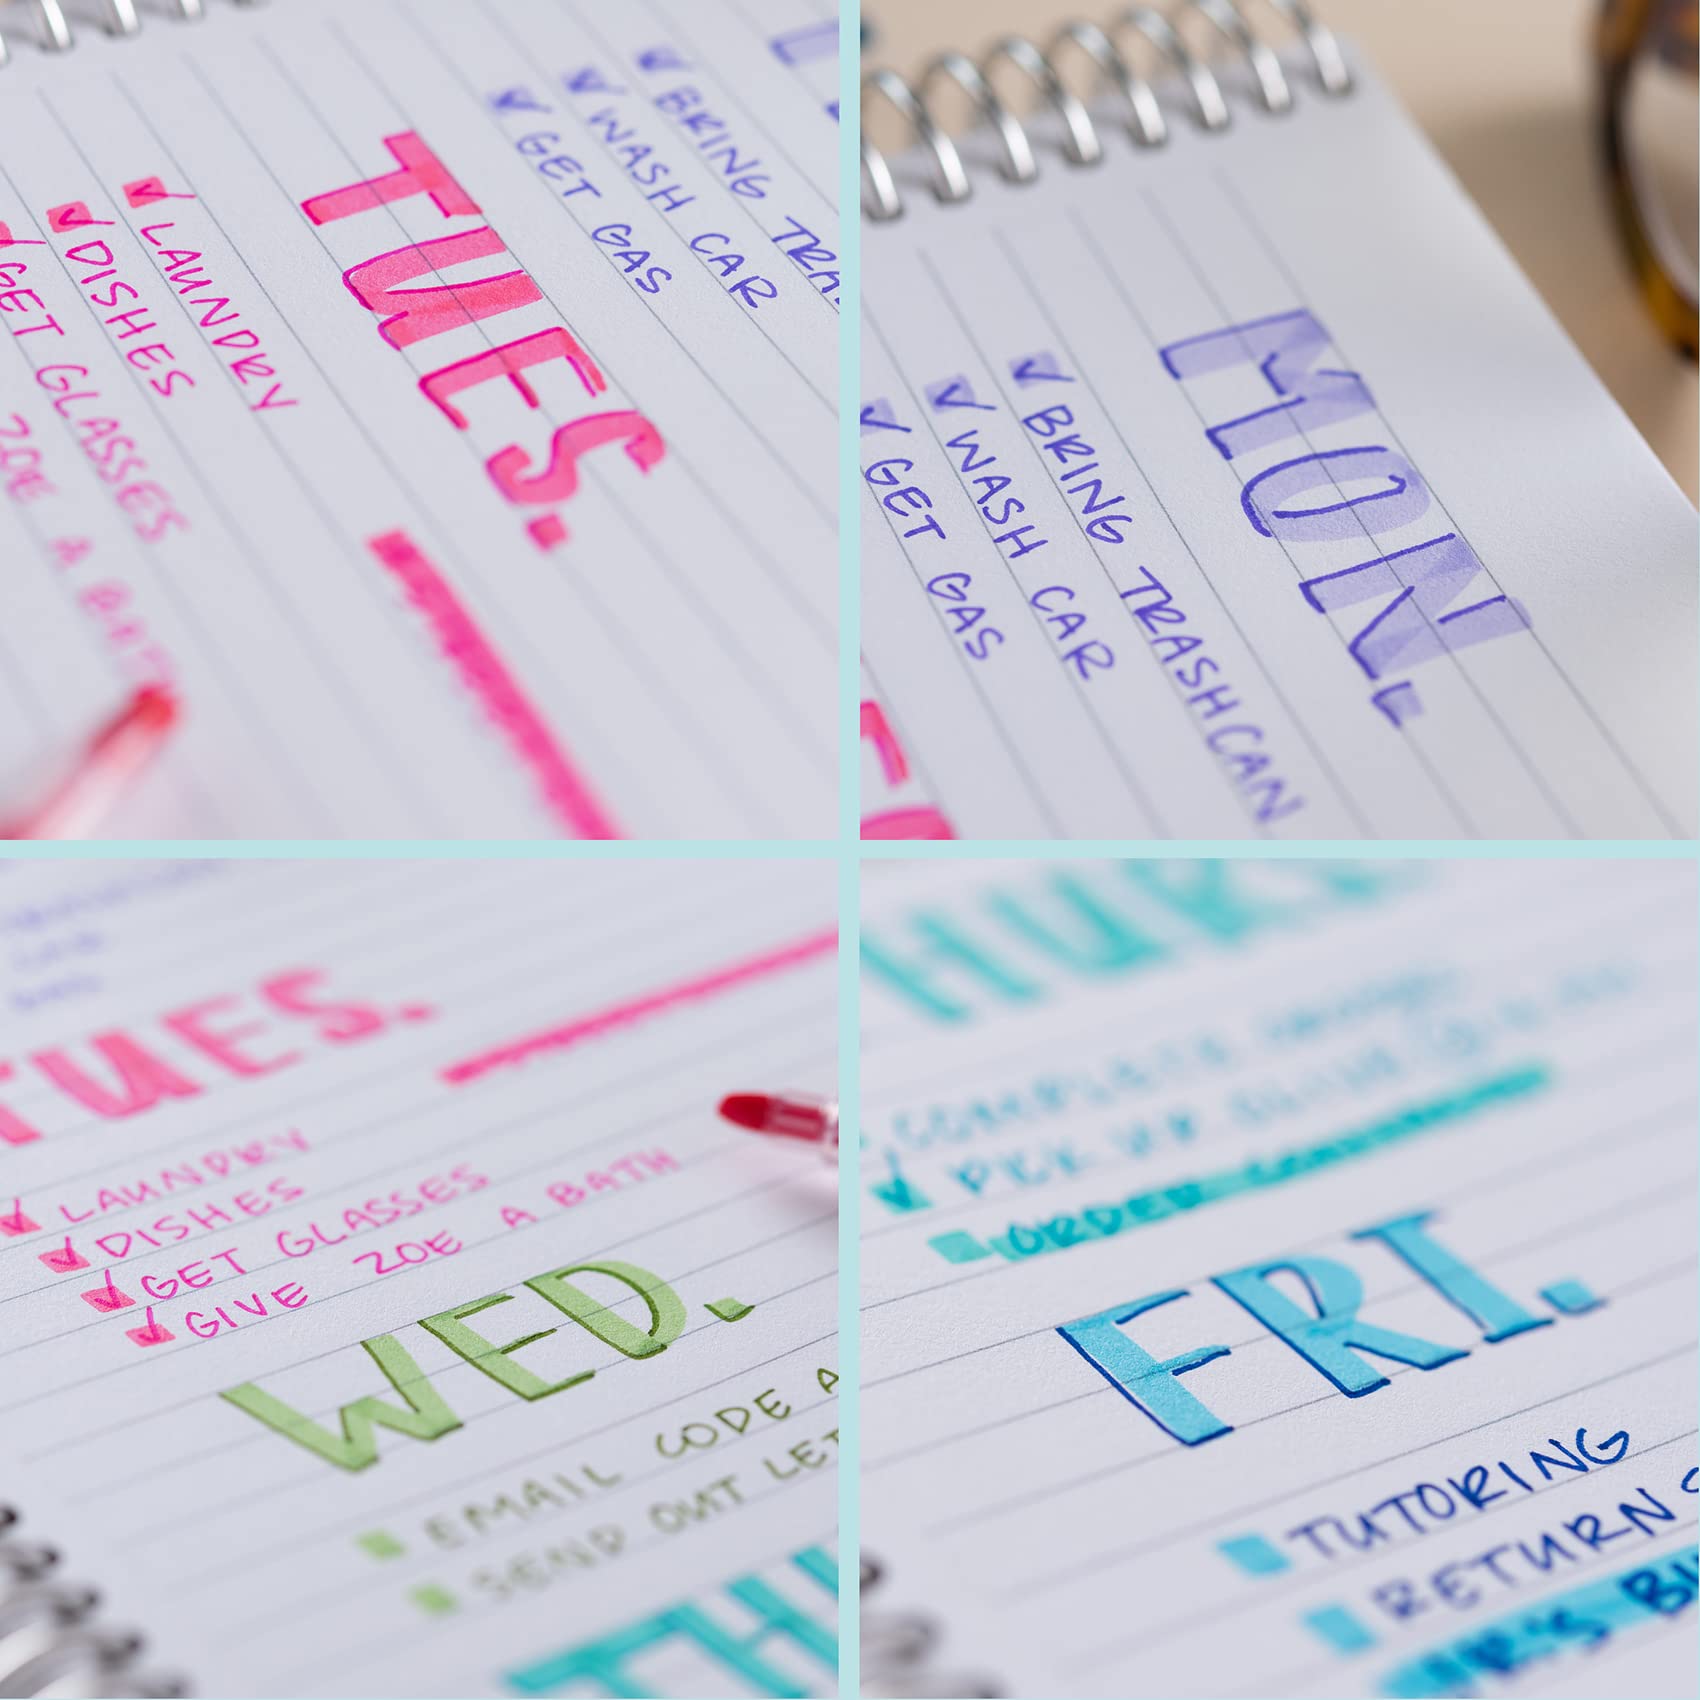 TUES.
✓ LAUNDRY
✓ DISHES
✓ GET GLASSES
ZOE A BATH
✓ BRING TRA
✓ WASH CAR
✓ GET GAS
MON.
✓ BRING TRASHCAN
✓ WASH CAR
✓ GET GAS
TUES.
✓ LAUNDRY
✓ DISHES
✓ GET GLASSES
✓ GIVE ZOE A BATH
WED.
EMAIL CODE A
SEND OUT LET
TH
HURS
COMPLETE
✓ PICK UP
ORDER
FRI.
TUTORING
RETURN